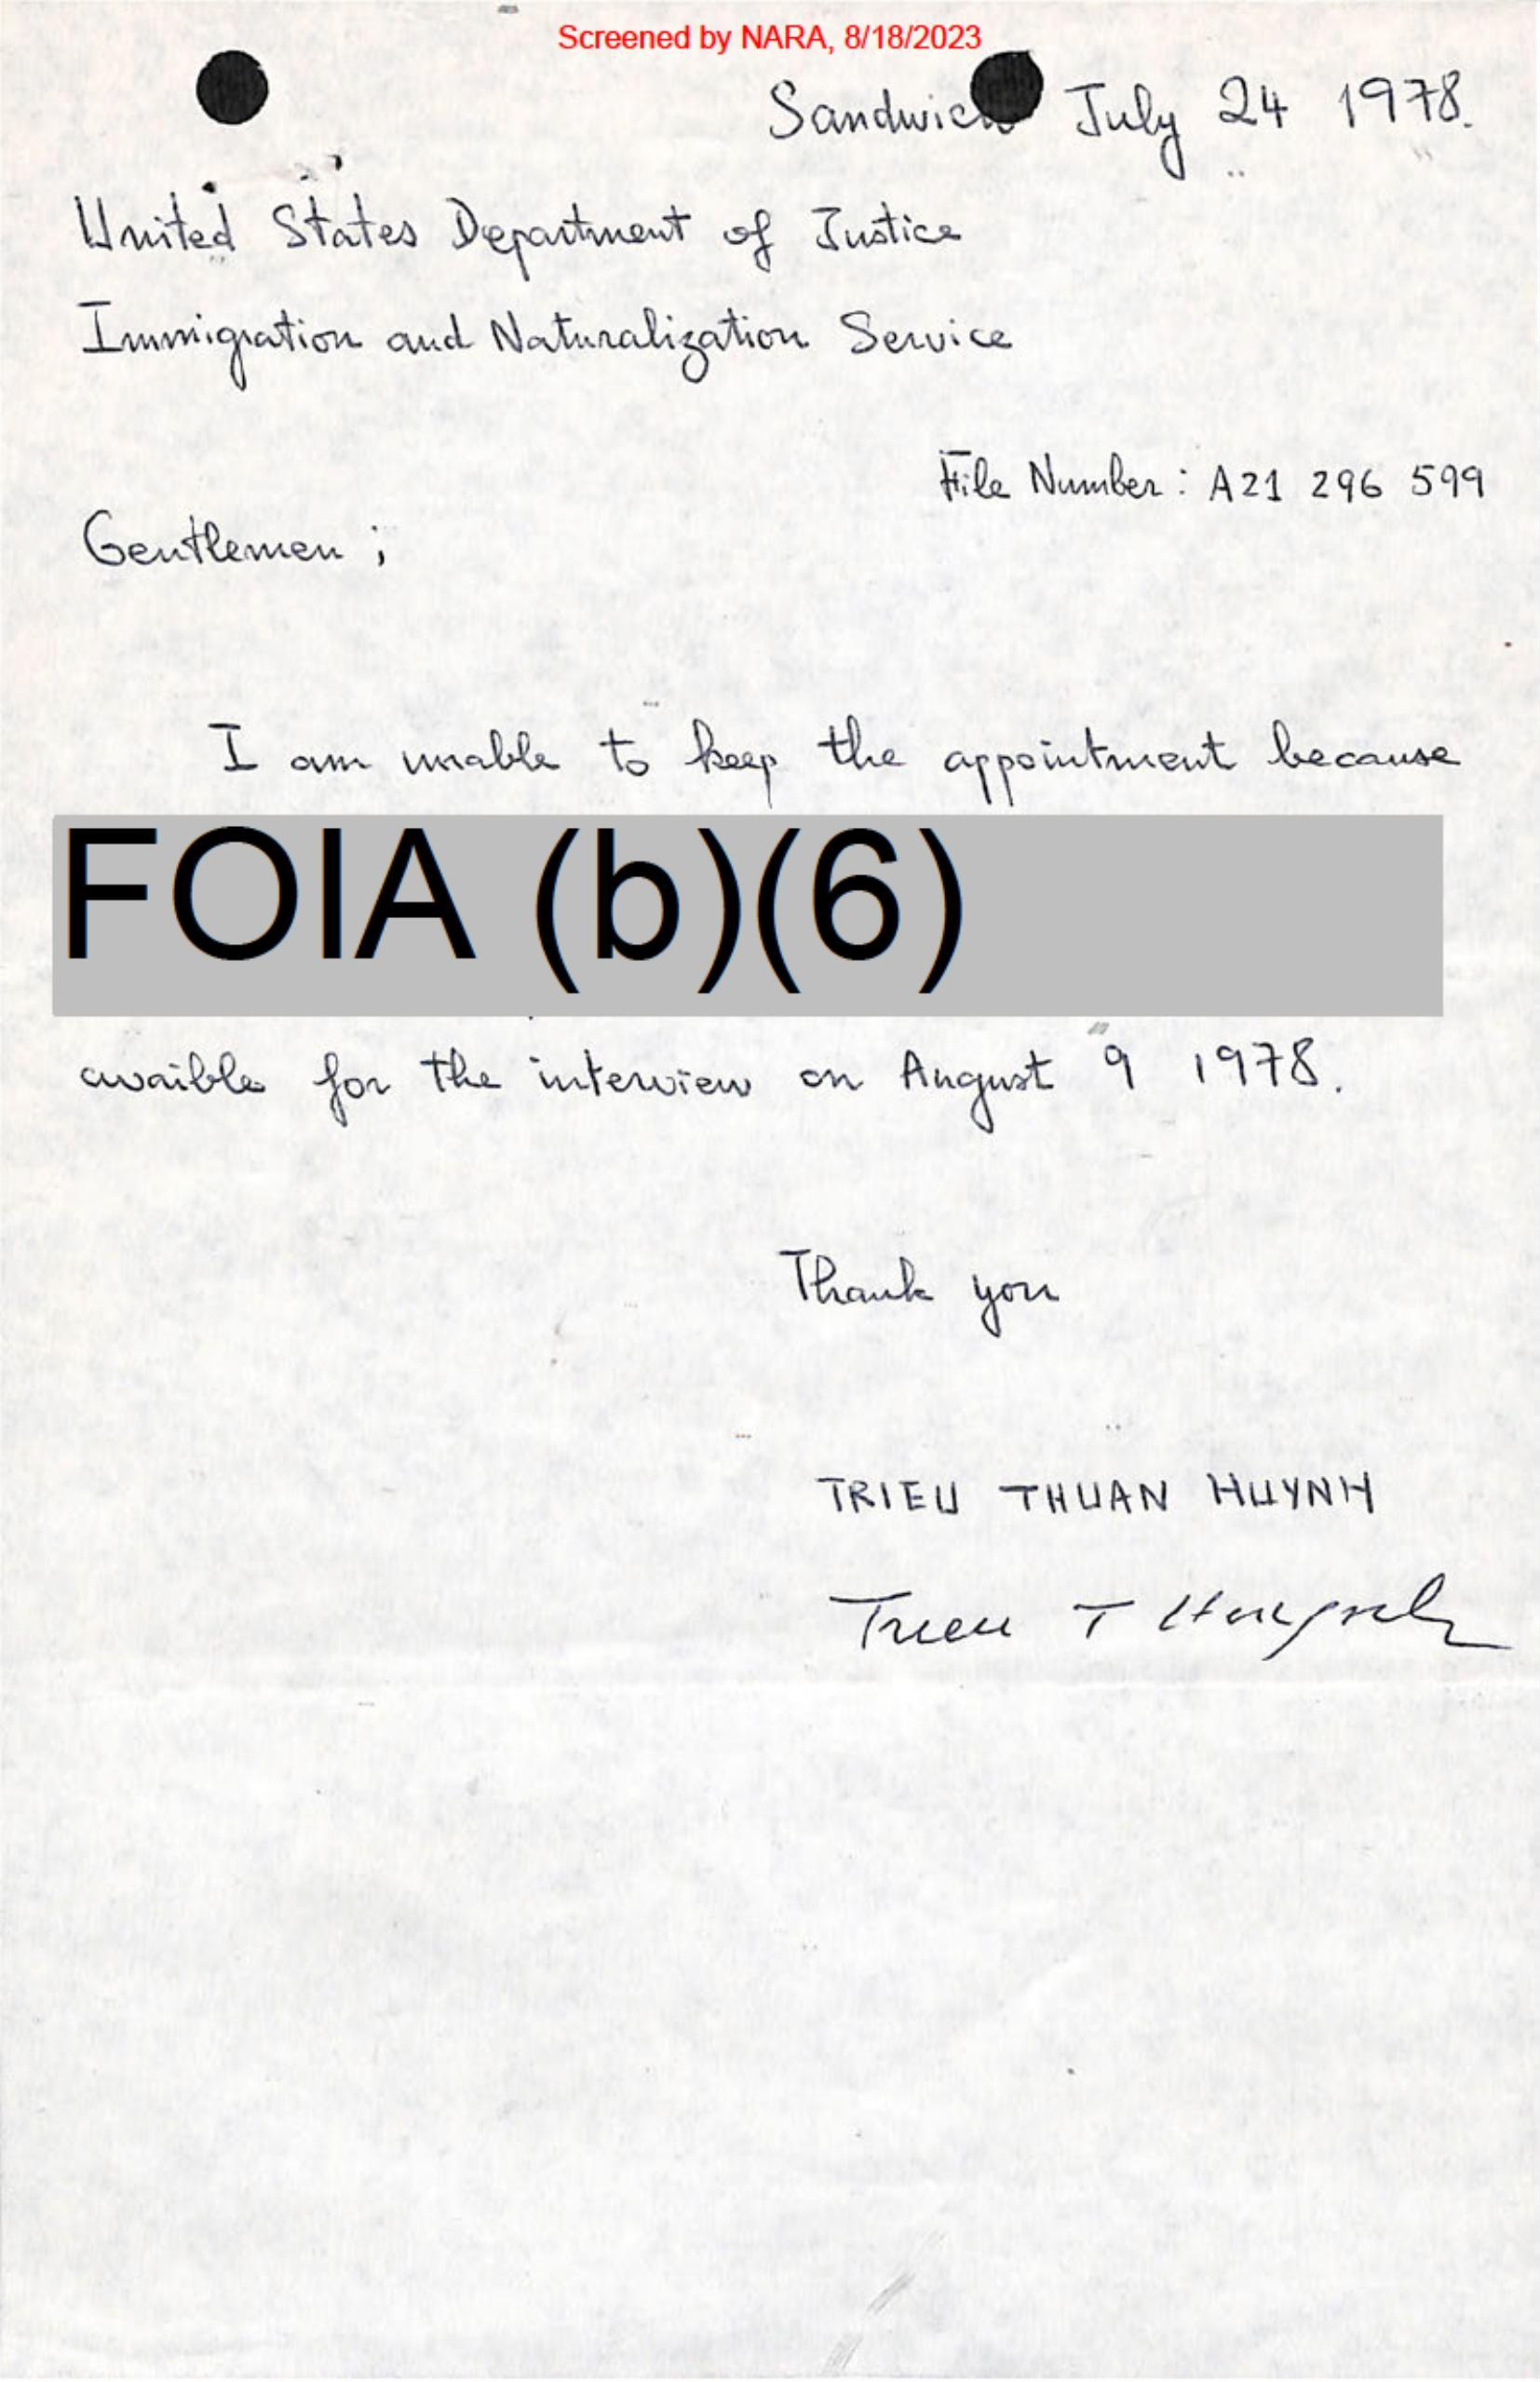 Screened by NARA, 8/18/2023
Sandwich July 24 1978.
United States Department of Justice
Immigration and Naturalization Service
File Number: A21 296 599
Gentlemen ;
I am unable to keep the appointment because
FOIA (b)(6)
avaible for the interview on August 9 1978.
Thank you
TRIEU THUAN HUYNH
Trieu T Huynh